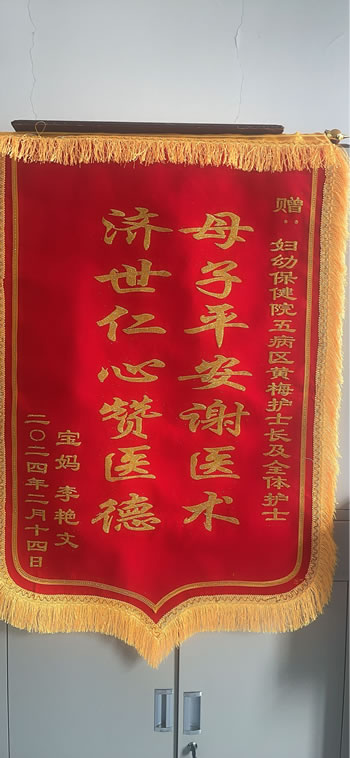 赠:妇幼保健院五病区黄梅护士长及全体护士
母子平安谢医术
济世仁心赞医德
宝妈 李艳文
二〇二四年二月十四日